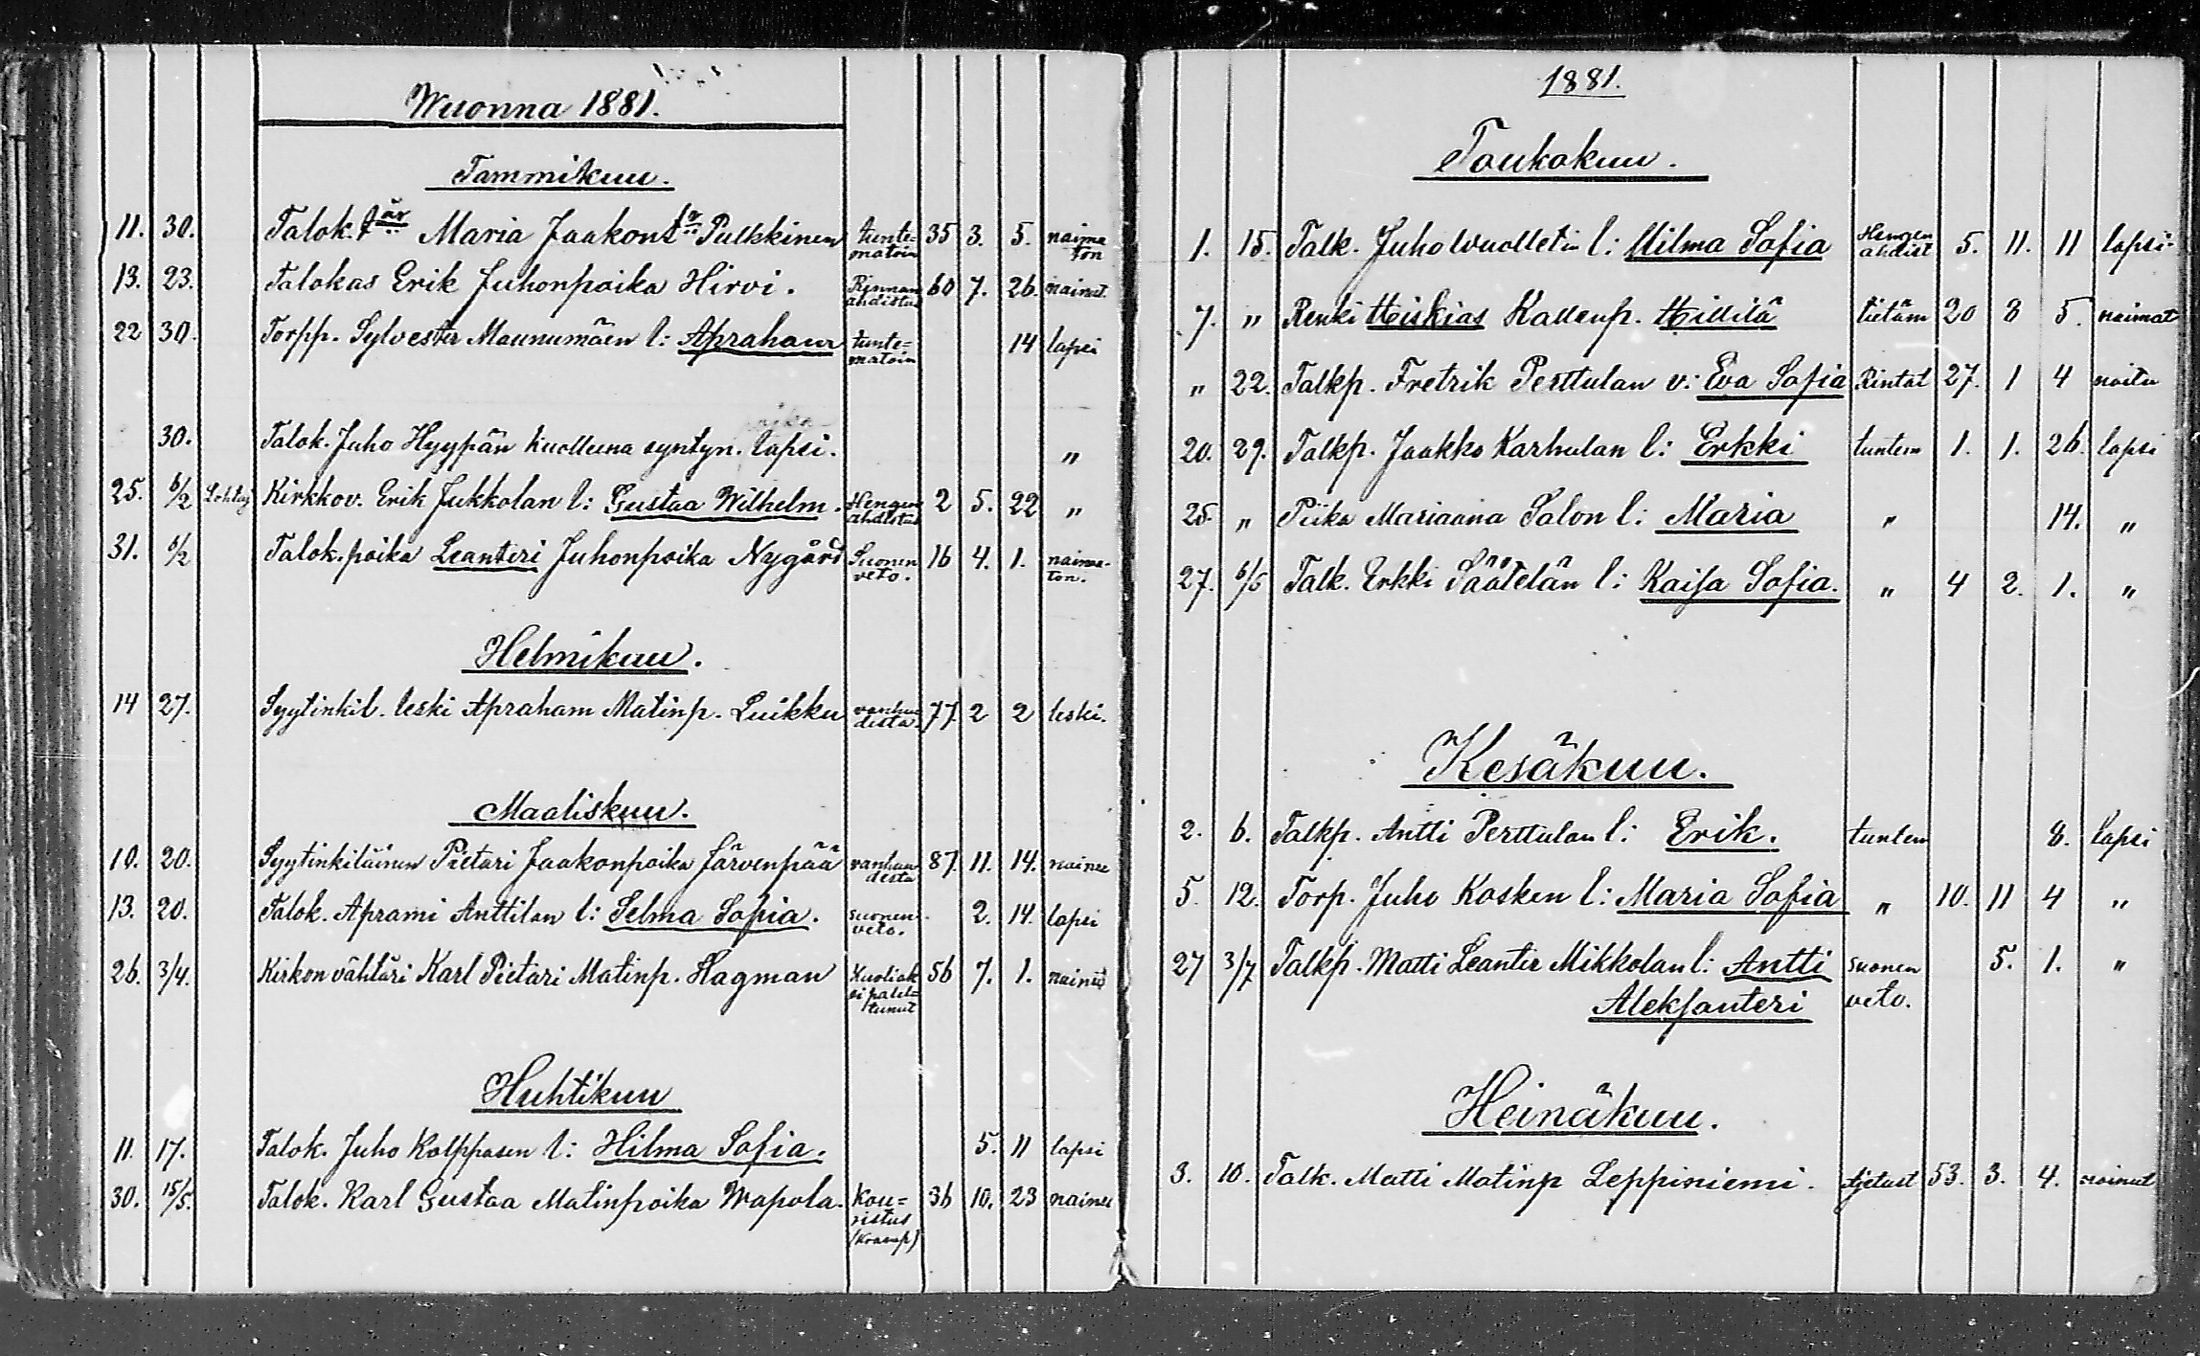 Wuonna 1881.
Tammikuu.
11. 30. Talok. tär Maria Jaakont:r Pulkkinen tunte=matoin 35 3. 5. naimaton
13. 23. Talokas Erik Juhonpoika Hirvi. Rinnan ahdistus 60 7. 26. nainut.
22 30. Torpp. Sylvester Maunumäen l: Apraham tunte=matoin 14 lapsi
30. Talok. Juho Hyypän kuolleena syntyn. lapsi. "
25. 6/2 Kirkkov. Erik Jukkolan l: Gustaa Wilhelm. Hengen ahdistus 2 5. 22 "
31. 6/2 Talok. poika Leanteri Juhonpoika Nygård Suonen veto. 16 4. 1. naima-ton.
Helmikuu.
14 27. Syytinkil. leski Apraham Matinp. Luikku vanhuudesta. 77 2 2 leski.
Maaliskuu.
10. 20. Syytinkiläinen Pietari Jaakonpoika Järvenpää vanhuudesta 87. 11. 14. nainu
13. 20. Talok. Aprami Anttilan l: Selma Sofia. suonen veto. 2. 14. lapsi
26. 3/4. Kirkon vähtäri Karl Pietari Matinp. Hagman Kuoliaksi palel=tunut 56 7. 1. nainut
Huhtikuu
11. 17. Talok. Juho Kolppasen l: Hilma Sofia. 5. 11 lapsi
30. 15/5. Talok. Karl Gustaa Matinpoika Wapola. Kou=ristus (Kramp) 36 10. 23 nainu
1881.
Toukokuu.
1. 15. Talk. Juho Wuolletin l: Milma Sofia Hengen ahdist 5. 11. 11 lapsi
7. " Renki Hiskias Kallenp. Hillilä tietäm 20 8 5. naimat
" 22. Talkp. Fretrik Perttulan v: Eva Sofia Rintat 27. 1 4 naitu
20. 29. Talkp. Jaakko Karhulan l: Erkki tuntem 1. 1. 26. lapsi
25. " Piika Mariaana Salon l: Maria " 14. "
27. 6/5 Talk. Erkki Säätelän l: Kaisa Sofia. " 4 2. 1. "
Kesäkuu.
2. 6. Talkp. Antti Perttulan l: Erik. tuntem 8. lapsi
5. 12. Torp. Juho Kosken l: Maria Sofia " 10. 11 4 "
27 3/7 Talkp. Matti Leanter Mikkolan l: Antti suonen 5. 1. "
Aleksanteri veto.
Heinäkuu.
3. 10. Talk. Matti Matinp Leppiniemi. Ajetust 53. 3. 4. nainut